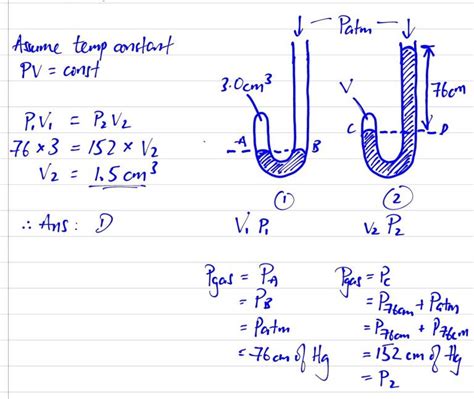 Assume temp constant
PV = const
P₁V₁ = P₂V₂
76 × 3 = 152 × V₂
V₂ = 1.5 cm³
∴ Ans: D
Patm
3.0cm³
A
B
①
V₁ P₁
V
C
D
76cm
②
V₂ P₂
Pgas = PA
= PB
= Patm
= 76 cm of Hg
Pgas = Pc
= P76cm + Patm
= P76cm + P76cm
= 152 cm of Hg
= P₂